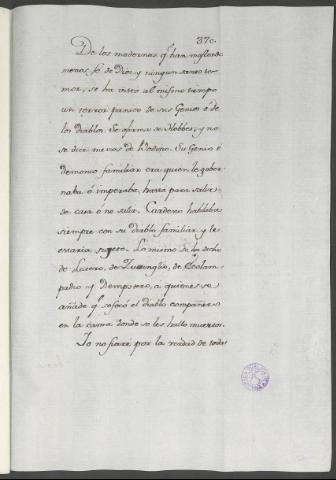 37c.
De los modernos q.e han mostrado
menos fè de Dios y ningun santo te-
mor, se ha visto al mismo tiempo
un terror panico de sus Genios ò de
los diablos. Se afirma de Hobbes, y no
se dice menos de Bodino. Su Genio ò
demonio familiar era quien le gober-
naba ò imperaba, hasta para salir
de casa ò no salir. Cardano hablaba
siempre con su diablo familiar, y le
estaria sugeto. Lo mismo se ha dicho
de Lutero, de Zuinglio, de Ecolam-
padio y Dempstero, a quienes se
añade q.e sofocó el diablo compañero
en la cama donde se les halló muertos.
Io no fiaré por la verdad de todo